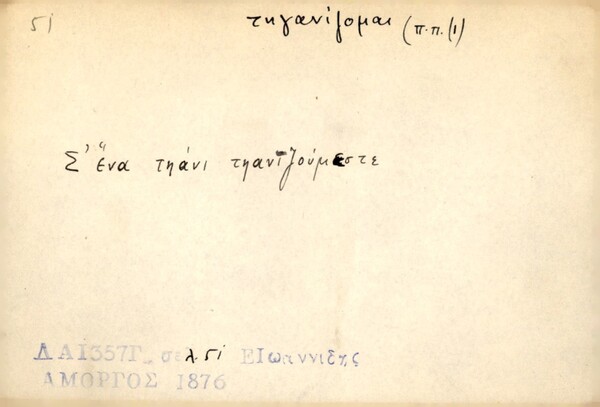 51 τηγανίζομαι (π.π.(1)
Σ' ἕνα τηάνι τηανιζούμεστε
ΛΑ1357Γ σελ 51 ΕΙωαννιδης
ΑΜΟΡΓΟΣ 1876